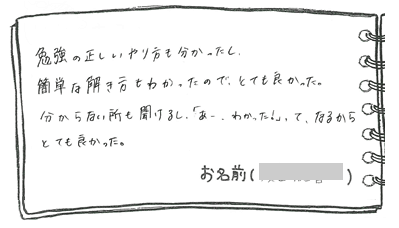 勉強の正しいやり方も分かったし、
簡単な解き方もわかったので、とても良かった。
分からない所も聞けるし、「あー、わかった!」、って、なるから
とても良かった。
お名前( )